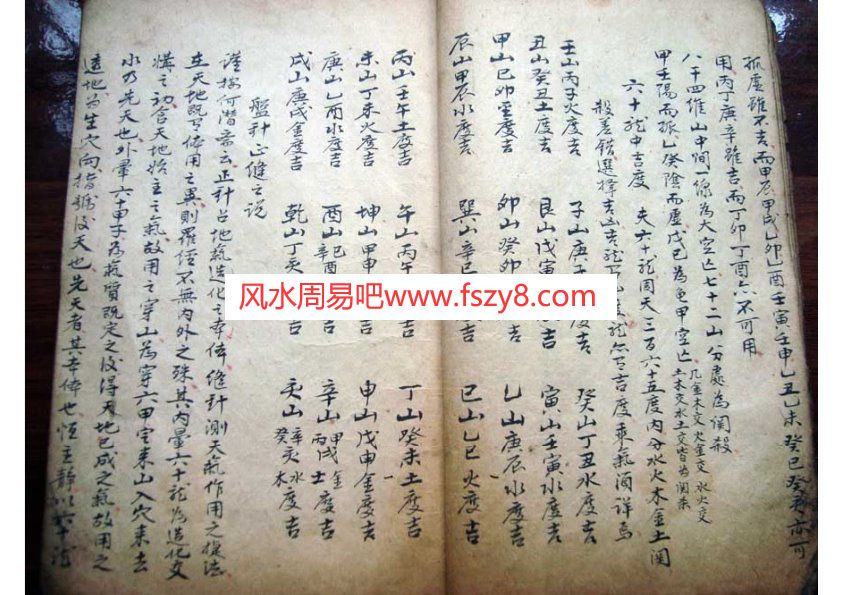 孤虛雖不吉而甲辰甲戌乙卯乙酉壬寅壬申乙丑乙未癸巳癸亥亦可
用丙丁庚辛雖吉而丁卯丁酉亦不可用
八干四維山中間一線為大空亡七十二山分處為関殺
凡金木交火金交水火交
土木交水土交皆為関杀
甲壬陽而孤乙癸陰而虛戊己為龟甲空亡
六十龍中吉度 夫六十龍周天三百六十五度內分水火木金土関
殺差錯選擇吉凶吉龍
度乘氣酒詳焉
壬山丙子火度吉 子山庚子 度吉 癸山丁丑水度吉
丑山癸丑土度吉 艮山戊寅 度吉 寅山壬寅水度吉
甲山己卯土度吉 卯山癸卯 吉 乙山庚辰水度吉
辰山甲辰水度吉 巽山辛巳 吉 巳山乙巳火度吉
丙山壬午土度吉 午山丙午 吉 丁山癸未土度吉
未山丁未火度吉 坤山甲申 吉 申山戊申金度吉
庚山乙酉水度吉 酉山己酉辛酉 吉 辛山甲戌金丙戌土度吉
戌山庚戌金度吉 乾山丁亥 吉 亥山辛亥水癸亥木度吉
盤針正縫之說
謹按何潛齋云正針占地氣造化之本体縫針測天氣作用之捷法
在天地既有体用之異則羅經不無內外之殊其內暈六十龍為造化交
媾之初含天地始主之氣故用之穿山為穿六甲定來山入穴來去
水乃先天也外暈六十甲子為氣質既定之後得天地已成之氣故用之
透地為坐穴向指歸後天也先天者其本体也恒主靜以六十龍
风水周易吧www.fszy8.com